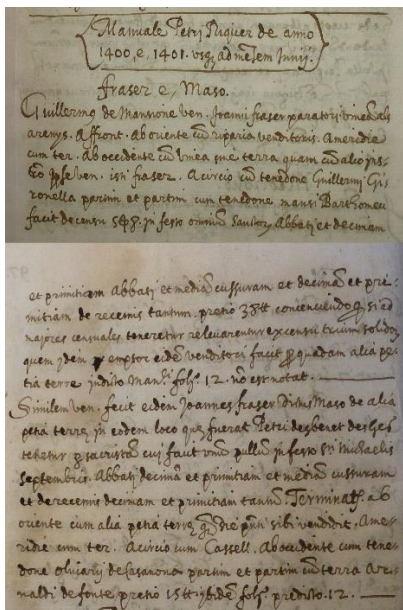 Manuale Petri Puguer de anno
1400, e, 1401. usq; ad mēsem Junij.
Fraser e, Maso.
Guillermꝰ de Mansione ven. Joanni fraser paratori vineā als
arenys. Affront. Ab oriente cū riparia venditoris. Ameridie
cum ter. Ab occidente cū vinea sive terra quam cū alio ins=
t̄o ipse ven. isti fraser. Acircio cum tenedone Guillermi Gi
ronella partim et partim cum tenedone mansi Barthomeu
facit de censu in festo omniū Sanctorȝ Abbati et decimam
et primitiam Abbati et mediā cussuram et decimā et pri=
mitiam de recemis tantum. pretio 38tt conveniendo si ad
majores censuales teneretur relevarentur ex censu trium solidoȝ
quem idem emptor eidē venditori facit quadam alia pe=
tia terre in dicto Man.li fol. 12. nō est notat.
Similem ven. fecit eidem Joannes fraser dictus Maso de alia
petia terre, in eodem loco que fuerat Petri desbenet
tenetur sacristam cui facit unū pullū in festo sti Michaelis
septembris. Abbati decimā et primitiam et mediā cussuram
et de recemis decimam et primitiam tantū. Terminat. ab
oriente cum alia petia terre, sibi vendidit. Ame=
ridie cum ter. Acircio cum Cassell. Ab occidente cum tene=
done olivarij de fasanona partim et partim cū terra Ar
naldi de fonte, pretio 15tt ibidē fol. predicto. 12.